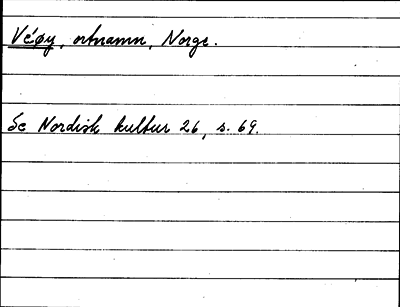 Véøy, ortnamn, Norge.
Se Nordisk kultur 26, s. 69.